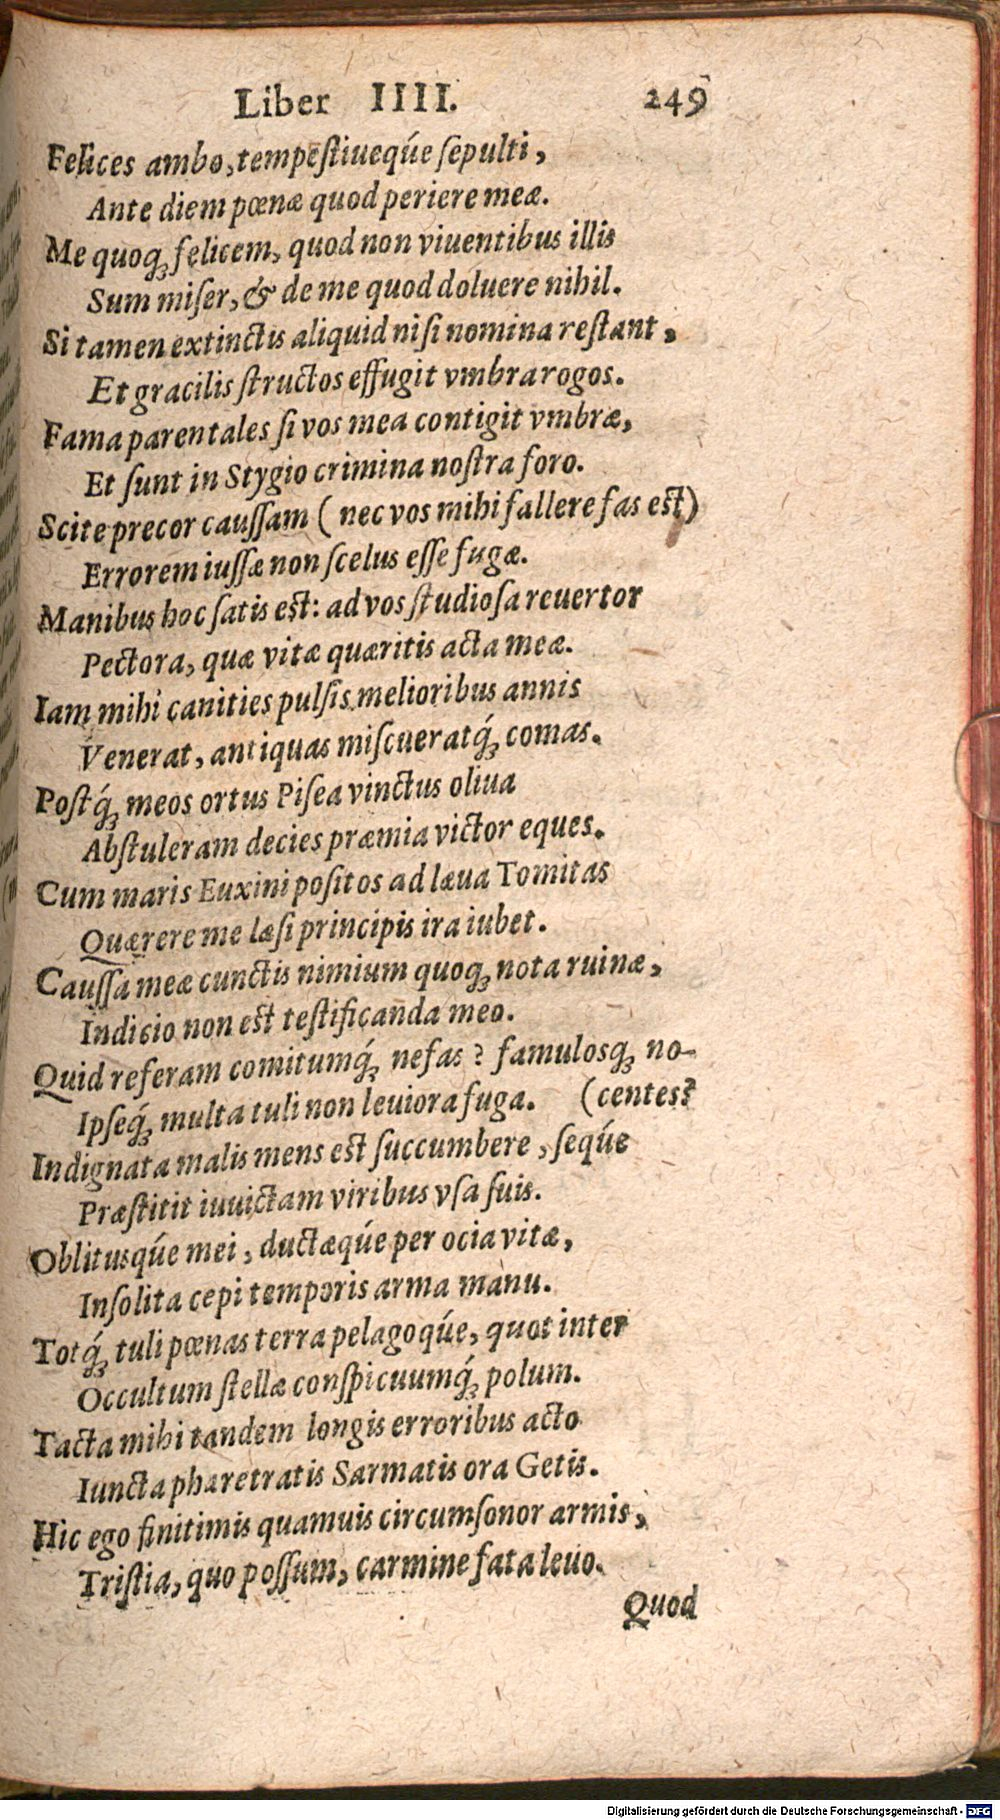 Liber IIII. 249
Felices ambo, tempeſtiueqúe ſepulti,
Ante diem pœnæ quod periere meæ.
Me quoq; felicem, quod non viuentibus illis
Sum miſer, & de me quod doluere nihil.
Si tamen extinctis aliquid niſi nomina reſtant,
Et gracilis ſtructos effugit vmbra rogos.
Fama parentales ſi vos mea contigit vmbræ,
Et ſunt in Stygio crimina noſtra foro.
Scite precor cauſſam ( nec vos mihi fallere fas eſt)
Errorem iuſſæ non ſcelus eſſe fugæ.
Manibus hoc ſatis eſt: ad vos ſtudioſa reuertor
Pectora, quæ vitæ quæritis acta meæ.
Iam mihi canities pulſis melioribus annis
Venerat, antiquas miſcueratq́; comas.
Poſtq́; meos ortus Piſea vinctus oliua
Abſtuleram decies præmia victor eques.
Cum maris Euxini poſitos ad læua Tomitas
Quærere me læſi principis ira iubet.
Cauſſa meæ cunctis nimium quoq; nota ruinæ,
Indicio non eſt teſtificanda meo.
Quid referam comitumq́; nefas? famulosq; no-
Ipſeq́; multa tuli non leuiora fuga. (centes?
Indignata malis mens eſt ſuccumbere, ſeqúe
Præſtitit iuuictam viribus vſa ſuis.
Oblitusqúe mei, ductæqúe per ocia vitæ,
Inſolita cepi temporis arma manu.
Totq́; tuli pœnas terra pelagoqúe, quot inter
Occultum ſtellæ conſpicuumq́; polum.
Tacta mihi tandem longis erroribus acto
Iuncta pharetratis Sarmatis ora Getis.
Hic ego finitimis quamuis circumſonor armis,
Triſtia, quo poſſum, carmine fata leuo.
Quod
Digitalisierung gefördert durch die Deutsche Forschungsgemeinschaft - DFG